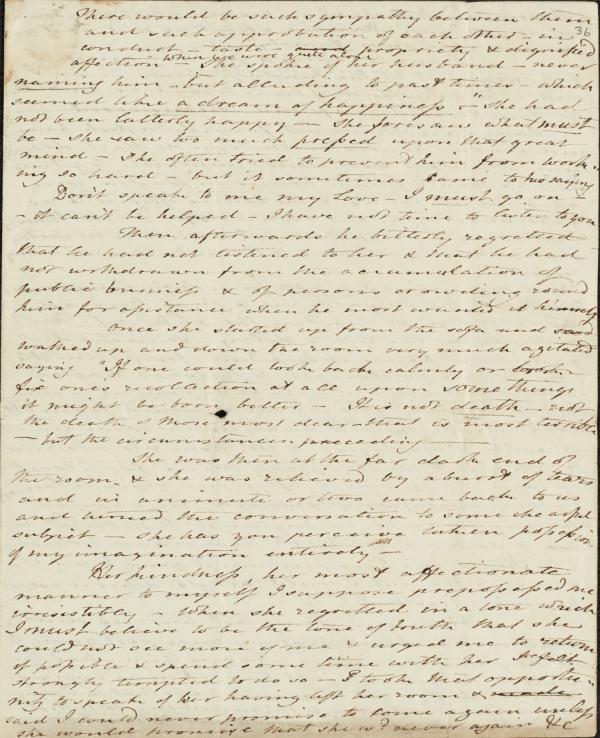 There would be such sympathy between them
36
and such approbation of each other - in
conduct - taste - and propriety & dignified
affection - when we were quite alone She spoke of her husband - never
naming him - but alluding to past times - which
seemed like a dream of happiness - She had
not been latterly happy - She foresaw what must
be - she saw too much pressed upon that great
mind - She often tried to prevent him from work-
ing so hard - but it sometimes came to his saying
Don't speak to me my Love - I must go on -
- it can't be helped - I have not time to listen to you
Then afterwards he bitterly regretted
that he had not listened to her & that he had
not withdrawn from the accumulation of
public business & of persons crowding round
him for assistance when he most wanted it himself
Once she started up from the sofa and
walked up and down the room very much agitated
saying "If one could look back calmly or
fix one's recollection at all upon some things
it might be born better - It is not death - not
the death of those most dear - that is most terrible
- but the circumstances preceding -
She was then at the far dark end of
the room, & she was relieved by a burst of tears
and in a minute or two came back to us
and turned the conversation to some chearful
subject - She has you perceive taken possession
of my imagination entirely -
Her kindness, her most affectionate
manner to myself I suppose prepossessed me
irresistibly - When she regretted in a tone which
I must believe to be the tone of truth that she
could not see more of me & urged me to return
if possible & spend some time with her I felt
strongly tempted to do so - I took that opportu-
nity to speak of her having left her room & made
said I could never promise to come again unless
she would promise that she wd never again &c